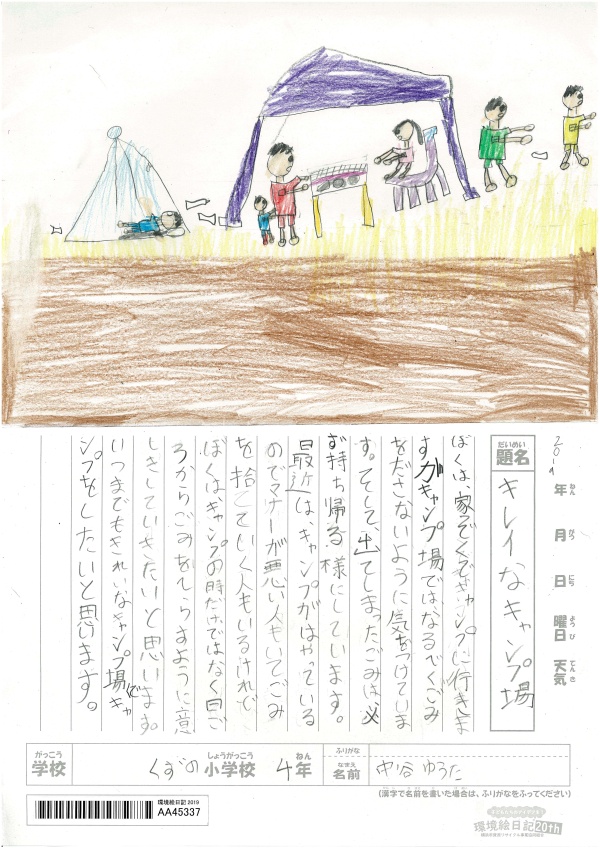 201
年 ねん
月 がつ
日 にち
曜日 ようび
天気 てんき
だいめい
題名
キレイなキャンプ場
ぼくは、家ぞくでキャンプに行きま
すがキャンプ場では、なるべくごみ
をださないように気をつけていま
す。そして、出てしまったごみは必
ず持ち帰る様にしています。
最近は、キャンプがはやっている
のでマナーが悪い人もいてごみ
を拾てていく人もいるけれど
ぼくはキャンプの時だけではなく日ご
ろからごみをへらすように意
しきしていきたいと思います。
いつまでもきれいなキャンプ場でキャ
ンプをしたいと思います。
がっこう
学校
くずの
しょうがっこう
小学校
4
ねん
年
ふりがな
なまえ
名前
中谷 ゆうた
(漢字で名前を書いた場合は、ふりがなをふってください)
環境絵日記 2019
AA45337
環境絵日記20th